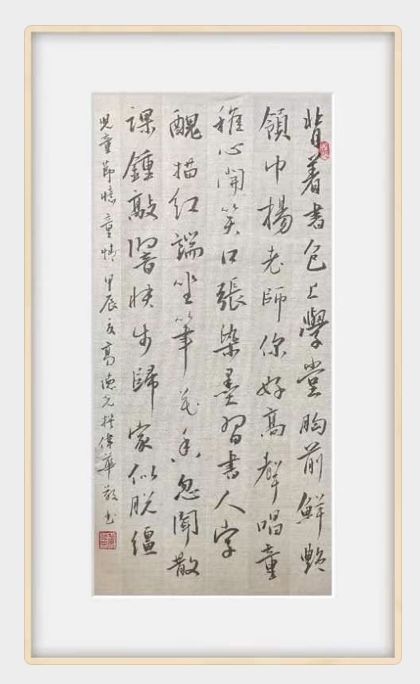 背着書包上學堂胸前鮮艷
領巾揚老師你好高聲唱童
稚心開笑口張染墨習書人字
醜描红端坐筆花香忽聞散
課鍾敲響快步歸家似脱缰
児童節憶童情甲辰夏高德元撰偉華敬書